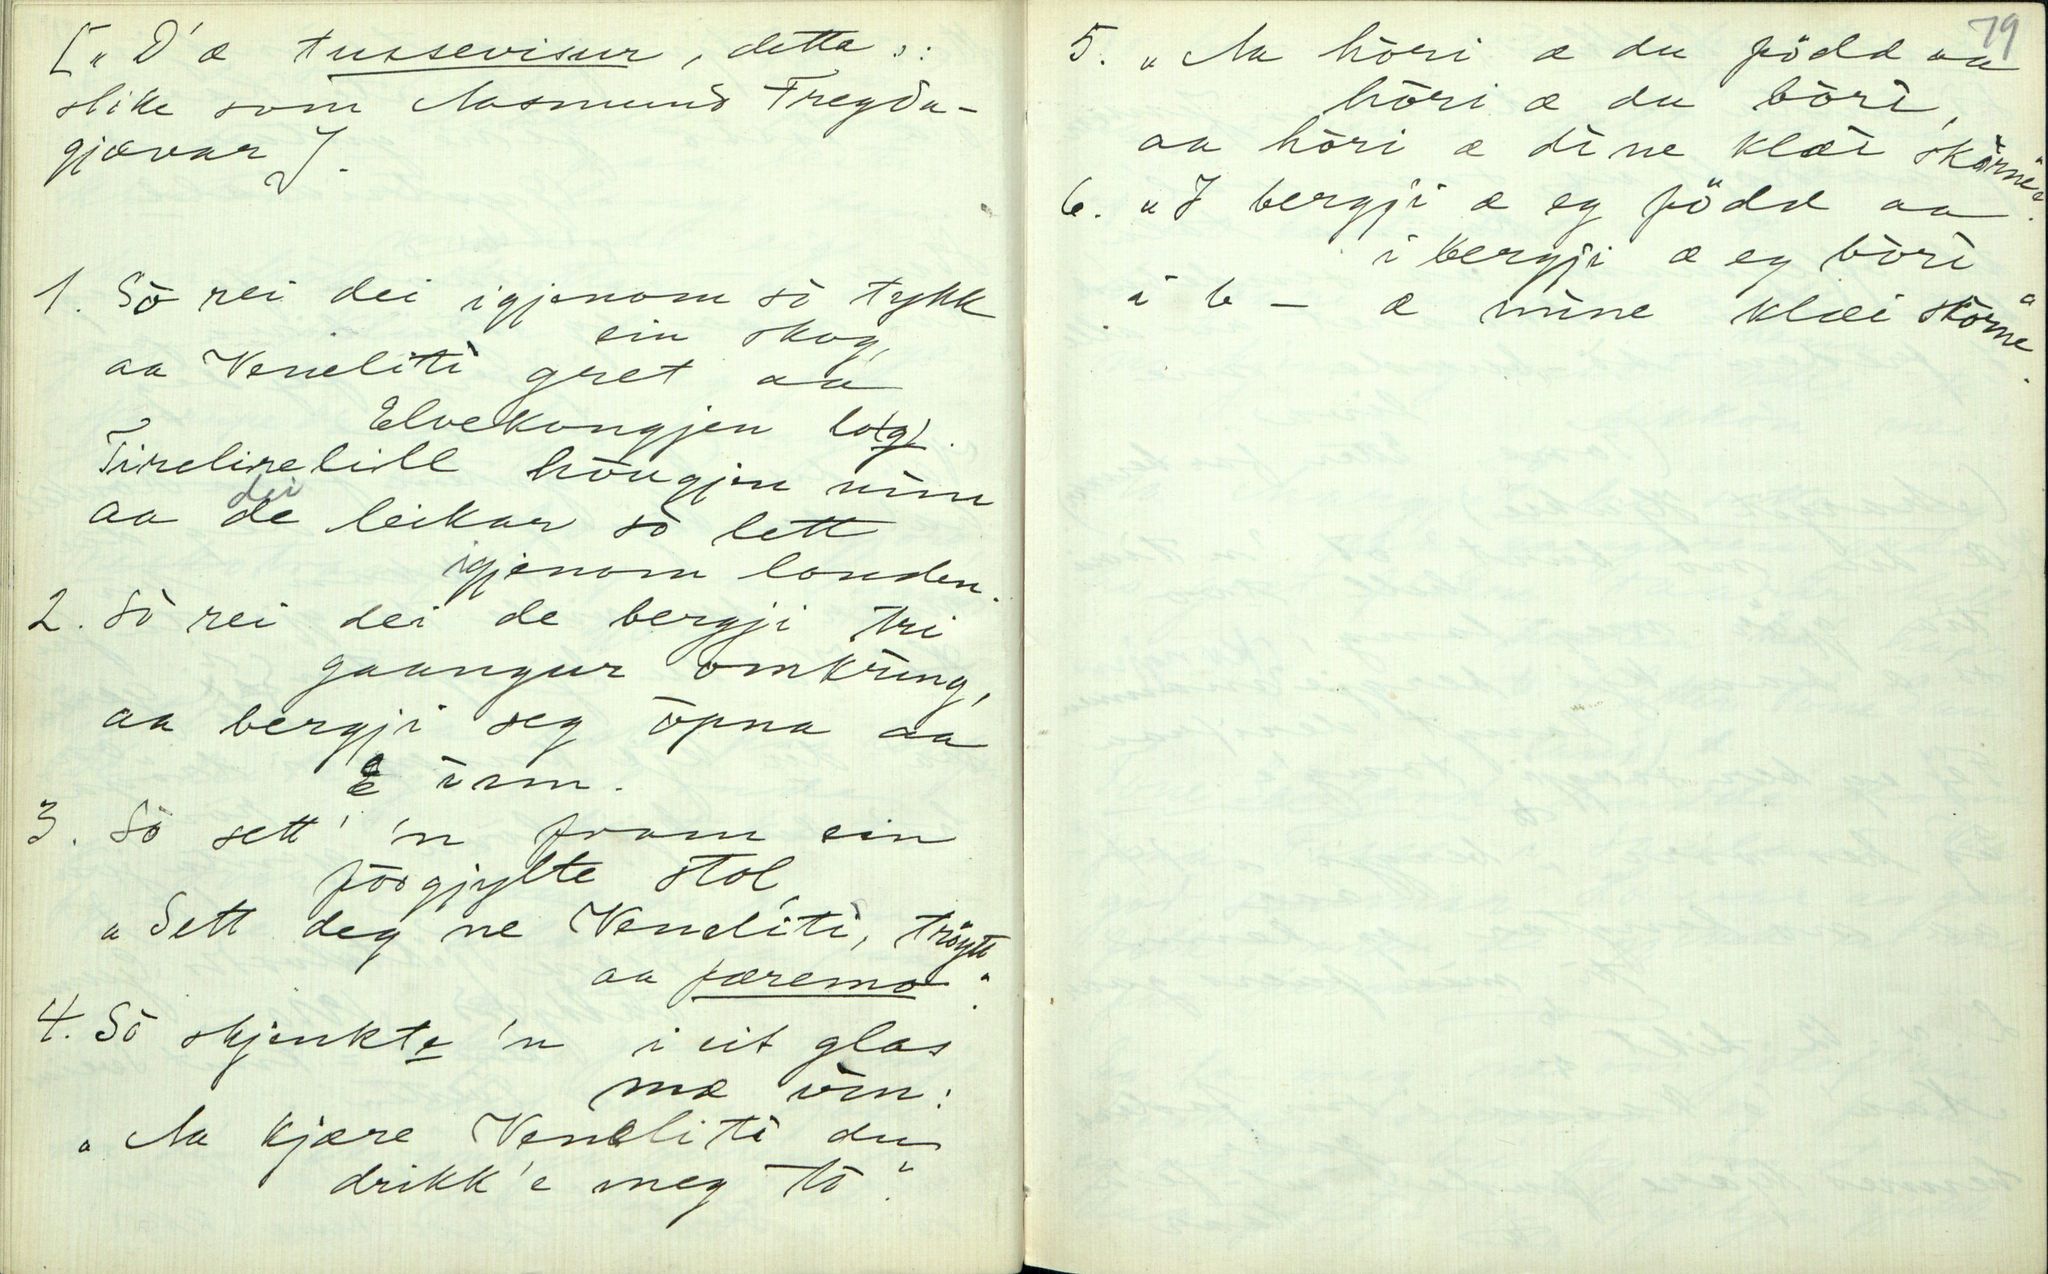 [„D'æ tussevisur, detta ɔ:
slike som Aasmund Fregda-
gjævar].
1. Sò rei dei igjenom sò tykk
ein skog,
aa Vendliti gret aa
Elvekongjen lo(g).
Tirelirelill hougjen min
dei
aa de leikar sò lett
igjenom londen.
2. Sò rei dei de bergji tri
gaangur omkring,
aa bergji seg òpna aa
inn.
3. Sò sett' 'n fram ein
förgjylte stol,
„Sett deg ne Vendliti, tröytt
aa færemo“.
4. Sò skjenkte 'n i eit glas
mæ vin:
„Aa kjære Vendliti du
drikk'e meg te“.
79
5. „Aa hòri æ du född aa
hòri æ du bòri,
aa hòri æ dine klæi skòrne“.
6. „I bergji æ eg född aa
i bergji æ eg bòri
i b — æ mine klæi skòrne“.